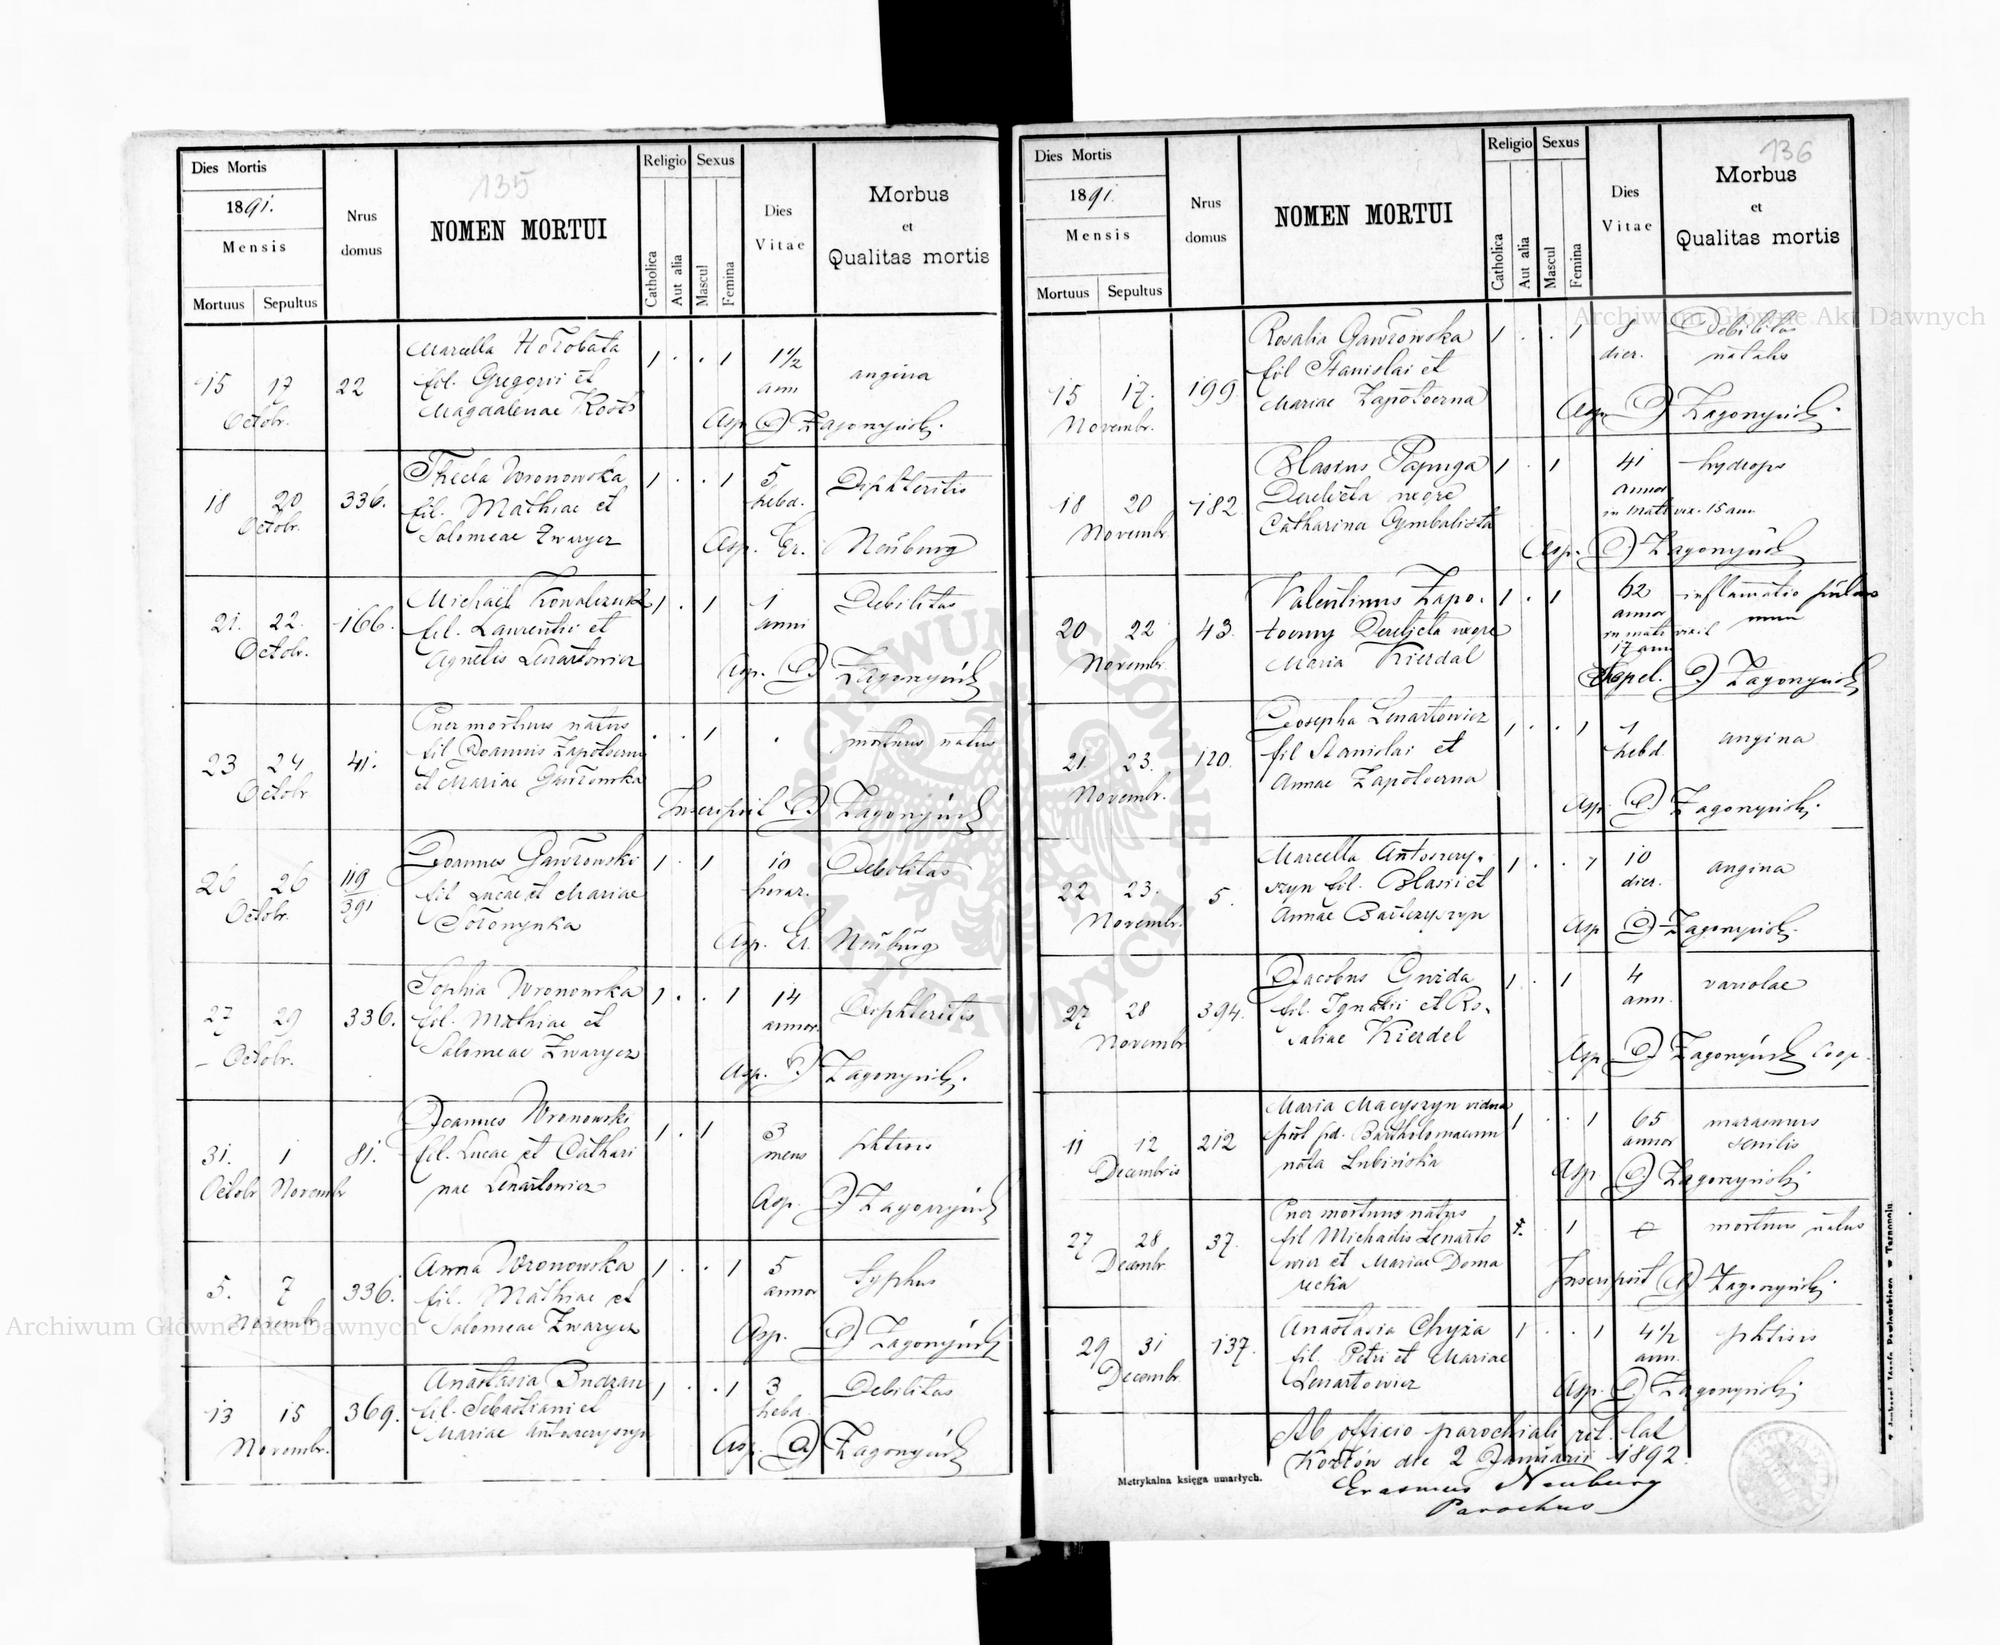 135
Dies Mortis
1891.
Mensis
Mortuus Sepultus
Nrus domus
NOMEN MORTUI
Religio Sexus
Catholica
Aut alia
Mascul
Femina
Dies Vitae
Morbus
et
Qualitas mortis
15 17 Octobr. 22
Marcella Hołobata
fil. Gregorii et
Magdalenae
1 . . 1
1 1/2 ann
angina
Asp Zagonyński
18 20 Octobr. 336.
Thecla Wronowska
fil. Mathiae et
Salomeae Zwarycz
1 . . 1
5 hebd.
Diphteritis
Asp. Er. Neuburg
21. 22. Octobr. 166.
Michael Kowalczuk
fil. Laurentii et
Agnetis Lenartowicz
1 . 1
1 anni
Debilitas
Asp. Zagonyński
23 24 Octobr 41.
Puer mortuus natus
fil Joannis Zapotoczny
et Mariae Gawłowska
. . 1 .
mortuus natus
Inscripsit Zagonyński
26 26 Octobr. 119/391
Joannes Gawłowski
fil Lucae et Mariae
Sołomynka
1 . 1
10 horar.
Debilitas
Asp. Er. Neuburg
27 29 Octobr. 336.
Sophia Wronowska
fil. Mathiae et
Salomeae Zwarycz
1 . . 1
14 annor
Diphteritis
Asp. Zagonyński.
31. 1 Octobr Novembr 81.
Joannes Wronowski
fil. Lucae et Cathari
nae Lenartowicz
1 . 1
3 mens
phtisis
Asp. Zagonyński
5. 7 Novembr 336.
Anna Wronowska
fil. Mathiae et
Salomeae Zwarycz
1 . . 1
5 annor
typhus
Asp. Zagonyński
13 15 Novembr. 369.
Anastasia Budzan
fil. Sebastiani et
Mariae Antoszczyszyn
1 . . 1
3 hebd.
Debilitas
Asp. Zagonyński
136
Dies Mortis
1891.
Mensis
Mortuus Sepultus
Nrus domus
NOMEN MORTUI
Religio Sexus
Catholica
Aut alia
Mascul
Femina
Dies Vitae
Morbus
et
Qualitas mortis
15 17. Novembr. 199
Rosalia Gawłowska
fil Stanislai et
Mariae Zapotoczna
1 . . 1
8 dier.
Debilitas
natalis
Asp. Zagonyński.
18 20 Novembr 182
Blasius Papuga
Derelicta uxore
Catharina Cymbalista
1 . 1
41 annor
in matr vix. 15 ann
hydrops
Asp. Zagonyński
20 22 Novembr 43.
Valentinus Zapo-
toczny Derelicta uxore
Maria Kierdal
1 . 1
62 annor
in matr vixit
17 ann
inflamatio pulmo
num
Zagonyński
21 23. Novembr. 120.
Josepha Lenartowicz
fil Stanislai et
Annae Zapotoczna
1 . . 1
1 hebd
angina
Asp. Zagonyński.
22 23. Novembr. 5.
Marcella Antoszczy-
szyn fil. Blasii et
Annae Bartczyszyn
1 . . 1
10 dier.
angina
Asp Zagonyński.
27 28 Novembr 394.
Jacobus Gwizda
fil. Ignatii et Ro-
saliae Kierdel
1 . 1
4 ann.
variolae
Asp Zagonyński Coop.
11 12 Decembris 212
Maria Macyszyn vidua
post pd. Bartholomaeum
nata Lubińska
1 . . 1
65 annor
marasmus
senilis
Asp Zagonyński
27 28 Decembr 37.
Puer mortuus natus
fil Michaelis Lenarto
wicz et Mariae Doma
recka
. 1
mortuus natus
Inscripsit Zagonyński.
29 31 Decembr. 137.
Anastasia Chyża
fil. Petri et Mariae
Lenartowicz
1 . . 1
4 1/2 ann.
phtisis
Asp. Zagonyński
Ab officio parochiali rit. lat
Kozłów dte 2 Januarii 1892.
Erasmus Neuburg
Parochus
Metrykalna księga umarłych.
Archiwum Główne Akt Dawnych
Archiwum Główne Akt Dawnych
ARCHIWUM GŁÓWNE AKT DAWNYCH